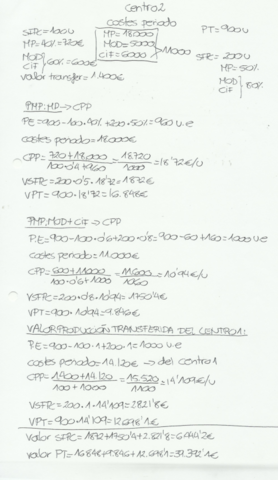 Centro 2
costes periodo
SIPC = 100u
MP = 40% = 320€
MOD
CIF } 60% = 600€
valor transfer = 1.400€
MP = 18.000
MOD = 5000
CIF = 6000 } 11000
PT = 900u
SFPC = 200u
MP = 50%
MOD
CIF } 80%
PMP: MP → CPP
PE = 900 - 100 · + 200 · 50% = 960 u.e
costes periodo = 18.000€
CPP = 720 + 18.000 / 100 · 0'4 + 960 = 18720 / 1000 = 18'72€/u
VSFPC = 200 · 0'5 · 18'72 = 1872€
VPT = 900 · 18'72 = 16.848€
PMP: MOD + CIF → CPP
P.E = 900 - 100 · 0'6 + 200 · 0'8 = 900 - 60 + 160 = 1000 u e
costes periodo = 11.000€
CPP = 600 + 11000 / 100 · 0'6 + 1000 = 11.600 / 1060 = 10'94€/u
VSFPC = 200 · 0'8 · 10'94 = 1750'4€
VPT = 900 · 10'94 = 9.846€
VALOR PRODUCCIÓN TRANSFERIDA DEL CENTRO 1:
PE = 900 - 100 · 1 + 200 · 1 = 1000 u e
costes periodo = 14.120€ → del centro 1
CPP = 1400 + 14.120 / 100 + 1000 = 15.520 / 1100 = 14'109€/u
VSFPC = 200 · 1 · 14'109 = 2821'8€
VPT = 900 · 14'109 = 12.698'1€
valor SFPC = 1872 + 1750'4 + 2821'8 = 6.444'2€
valor PT = 16848 + 9846 + 12.698'1 = 39.392'1€